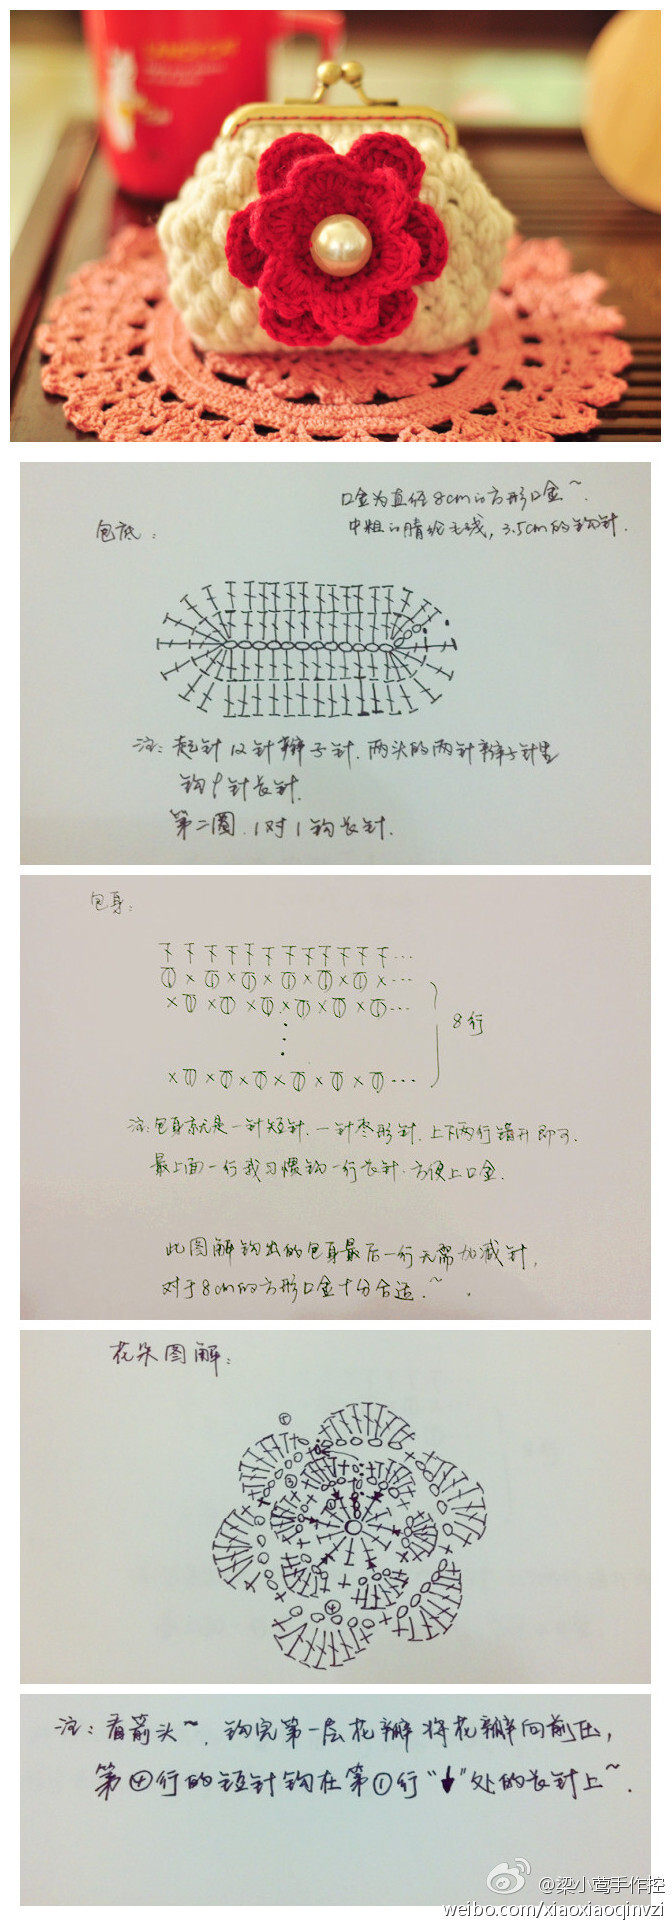 口金为直径8cm的方形口金~.
中粗的腈纶毛线，3.5cm的钩针.
包底：
注：起针12针辫子针.两头的两针辫子针里
钩9针长针.
第二圈.1对1钩长针.
包身：
8行
注：包身就是一针短针.一针枣形针.上下两行错开即可.
最上面一行我习惯钩一行长针.方便上口金.
此图解钩出的包身最后一行无需加减针，
对于8cm的方形口金十分合适.~.
花朵图解：
⑤
③
①
④
注：看箭头~.钩完第一层花瓣将花瓣向前压，
第④行的短针钩在第①行“↓”处的长针上~.
@梁小莺手作控
weibo.com/xiaoxiaoqinvzi